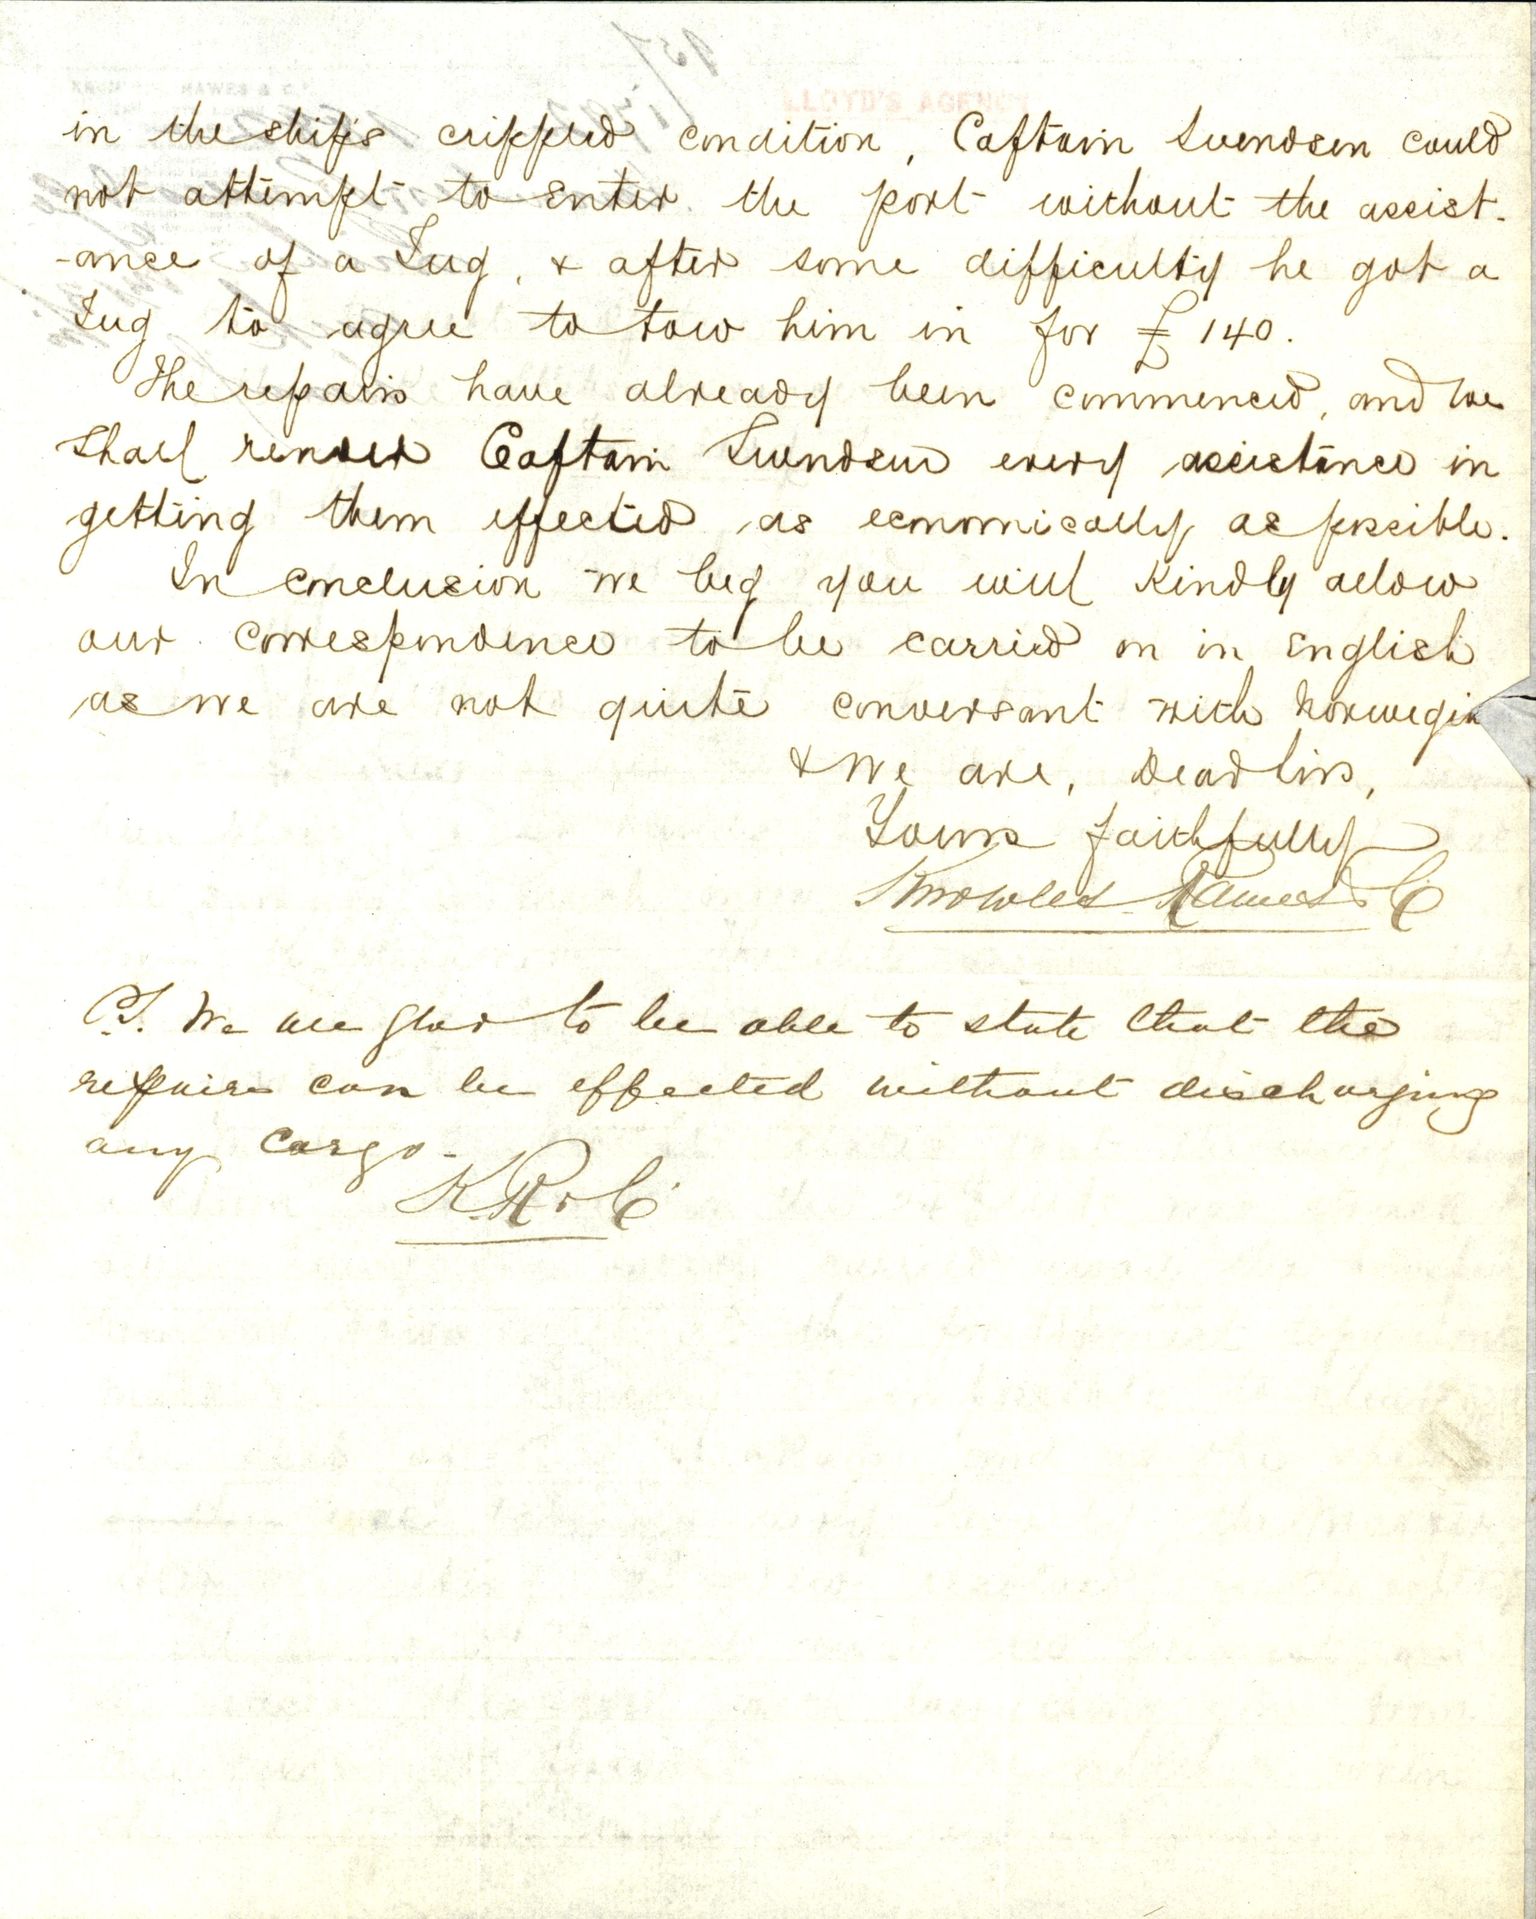 in the ship's crippled condition, Captain Svendsen could
not attempt to enter the port without the assist-
-ance of a Tug, & after some difficulty he got a
Tug to agree to tow him in for £140.
The repairs have already been commenced, and we
shall render Captain Svendsen every assistance in
getting them effected as economically as possible.
In conclusion we beg you will kindly allow
our correspondence to be carried on in English
as we are not quite conversant with Norwegian
& we are, Dear Sirs,
Yours faithfully
Knowles Hawes & Co
P.S. We are glad to be able to state that the
repairs can be effected without discharging
any cargo.
K. H & Co
LLOYD'S AGENCY